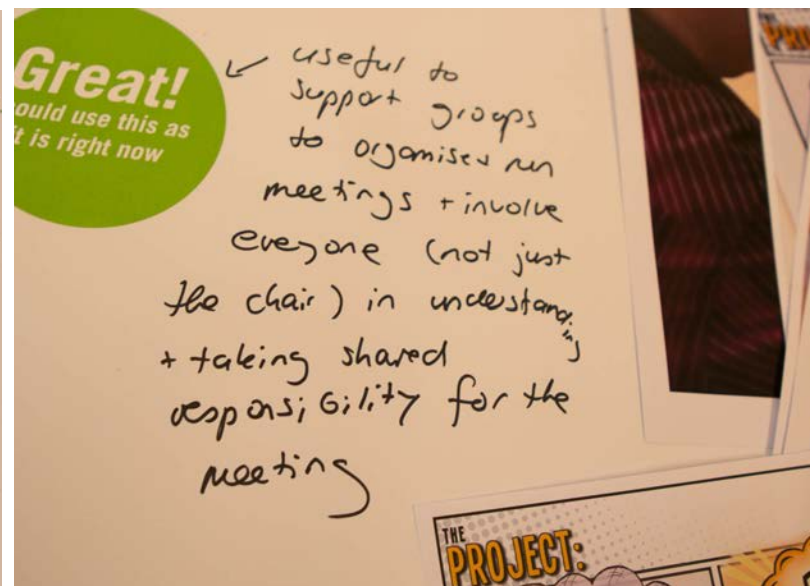 Great!
ould use this as
it is right now
useful to
support groups
to organise + run
meetings + involve
everyone (not just
the chair) in understanding
+ taking shared
responsibility for the
meeting
THE
PROJECT:
THE